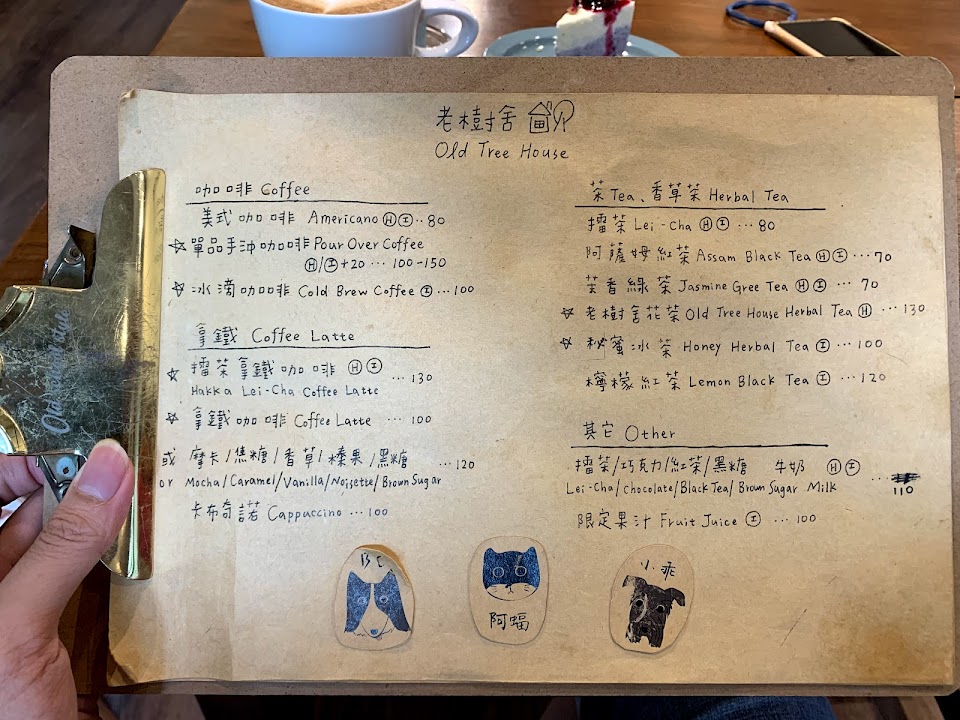 老樹舍
Old Tree House
咖啡 Coffee
美式咖啡 Americano Ⓗ Ⓘ ‥80
☆單品手沖咖啡 Pour Over Coffee
Ⓗ/Ⓘ+20 … 100-150
☆冰滴咖啡 Cold Brew Coffee Ⓘ …100
拿鐵 Coffee Latte
☆擂茶拿鐵咖啡 Ⓗ Ⓘ … 130
Hakka Lei-Cha Coffee Latte
☆拿鐵咖啡 Coffee Latte … 100
或 摩卡/焦糖/香草/榛果/黑糖 …120
or Mocha/Caramel/Vanilla/Noisette/Brown Sugar
卡布奇諾 Cappuccino …100
茶 Tea、香草茶 Herbal Tea
擂茶 Lei-Cha Ⓗ Ⓘ …80
阿薩姆紅茶 Assam Black Tea Ⓗ Ⓘ …70
茉香綠茶 Jasmine Gree Tea Ⓗ Ⓘ … 70
☆老樹舍花茶 Old Tree House Herbal Tea Ⓗ …130
☆秘蜜冰茶 Honey Herbal Tea Ⓘ …100
檸檬紅茶 Lemon Black Tea Ⓘ …120
其它 Other
擂茶/巧克力/紅茶/黑糖 牛奶 Ⓗ Ⓘ
Lei-Cha/Chocolate/Black Tea/Brown Sugar Milk … 110
限定果汁 Fruit Juice Ⓘ …100
阿蝠
小乖